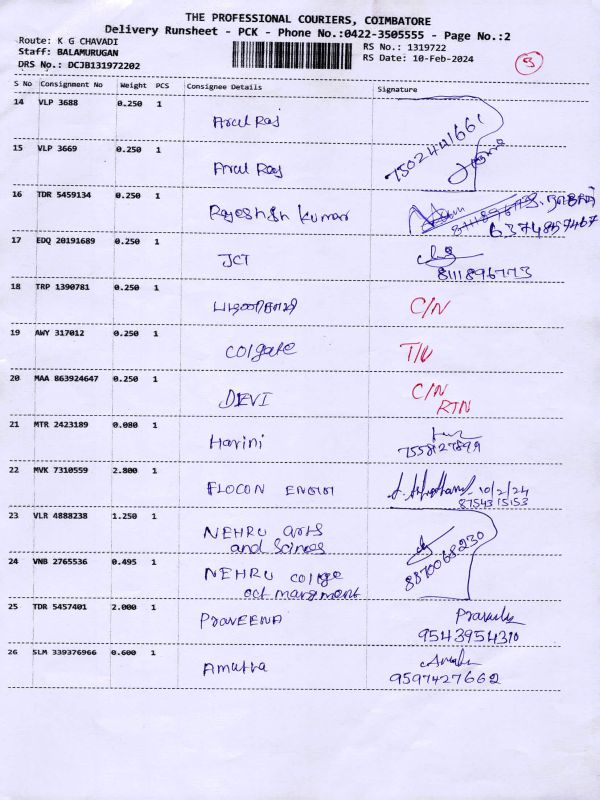 THE PROFESSIONAL COURIERS, COIMBATORE
Delivery Runsheet - PCK - Phone No.:0422-3505555 - Page No.:2
Route: K G CHAVADI
RS No.: 1319722
Staff: BALAMURUGAN
RS Date: 10-Feb-2024
DRS No.: DCJB131972202
S No Consignment No Weight PCS Consignee Details Signature
14 VLP 3688 0.250 1 Arul Raj
7502441661
15 VLP 3669 0.250 1 Arul Raj
16 TDR 5459134 0.250 1 Rajeshsh Kumar
6374857467
17 EDQ 20191689 0.250 1 JCT
8111896773
18 TRP 1390781 0.250 1 C/N
19 AWY 317012 0.250 1 Colgate T/U
20 MAA 863924647 0.250 1 DEVI C/N
RTN
21 MTR 2423189 0.080 1 Harini
7558127899
22 MVK 7310559 2.800 1 FLOCON 10/2/24
8754315153
23 VLR 4888238 1.250 1 NEHRU arts
and Scinces
8870068230
24 VNB 2765536 0.495 1 NEHRU college
25 TDR 5457401 2.000 1 PRAVEENA
9543954310
26 SLM 339376966 0.600 1 Amutha
9597427662